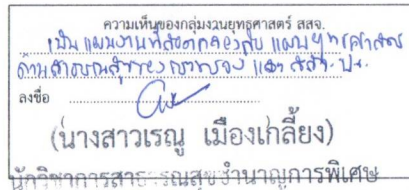 ความเห็นของกลุ่มงานยุทธศาสตร์ สสจ.
เป็นแผนงานที่สอดคล้องกับ แผนยุทธศาสตร์
ด้านสาธารณสุขของ และ สสจ.
ลงชื่อ
(นางสาวเรณู เมืองเกลี้ยง)
นักวิชาการสาธารณสุขชำนาญการพิเศษ